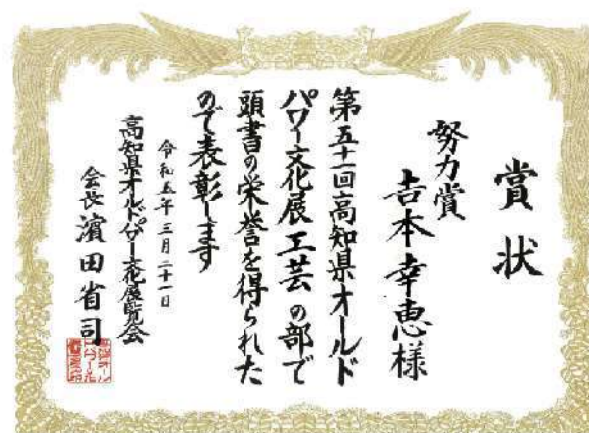 賞状
努力賞
吉本幸恵様
第五十一回高知県オールド
パワー文化展工芸の部で
頭書の栄誉を得られた
ので表彰します
令和五年三月二十一日
高知県オールドパワー文化展覧会
会長 濵田省司